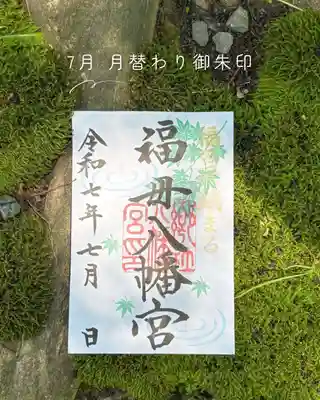 7月 月替わり御朱印
福母八幡宮
令和七年七月 日